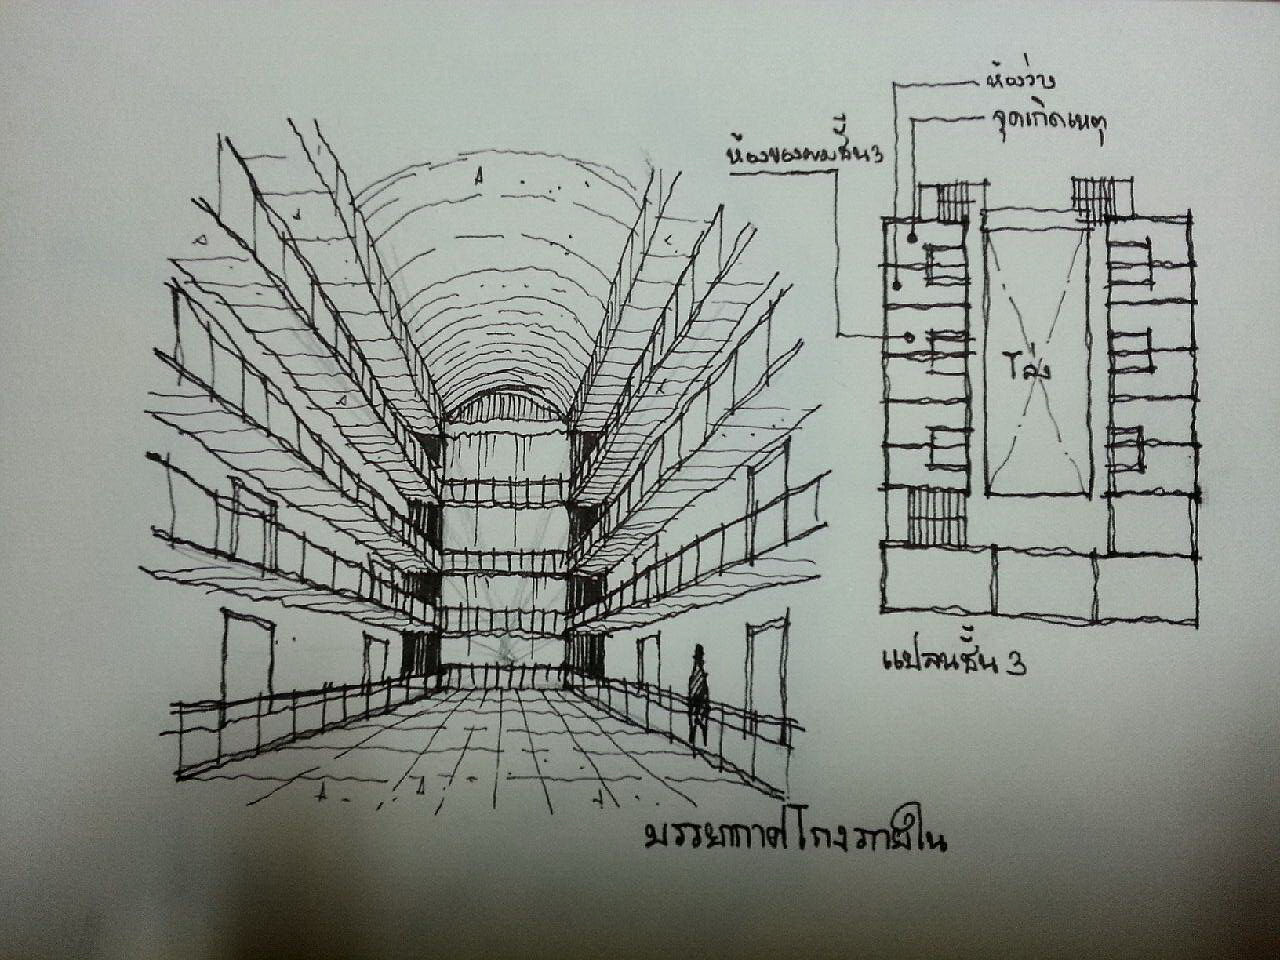 ห้องว่าง
จุดเกิดเหตุ
ห้องของผมชั้น3
โล่ง
แปลนชั้น 3
บรรยกกาศโถงภายใน